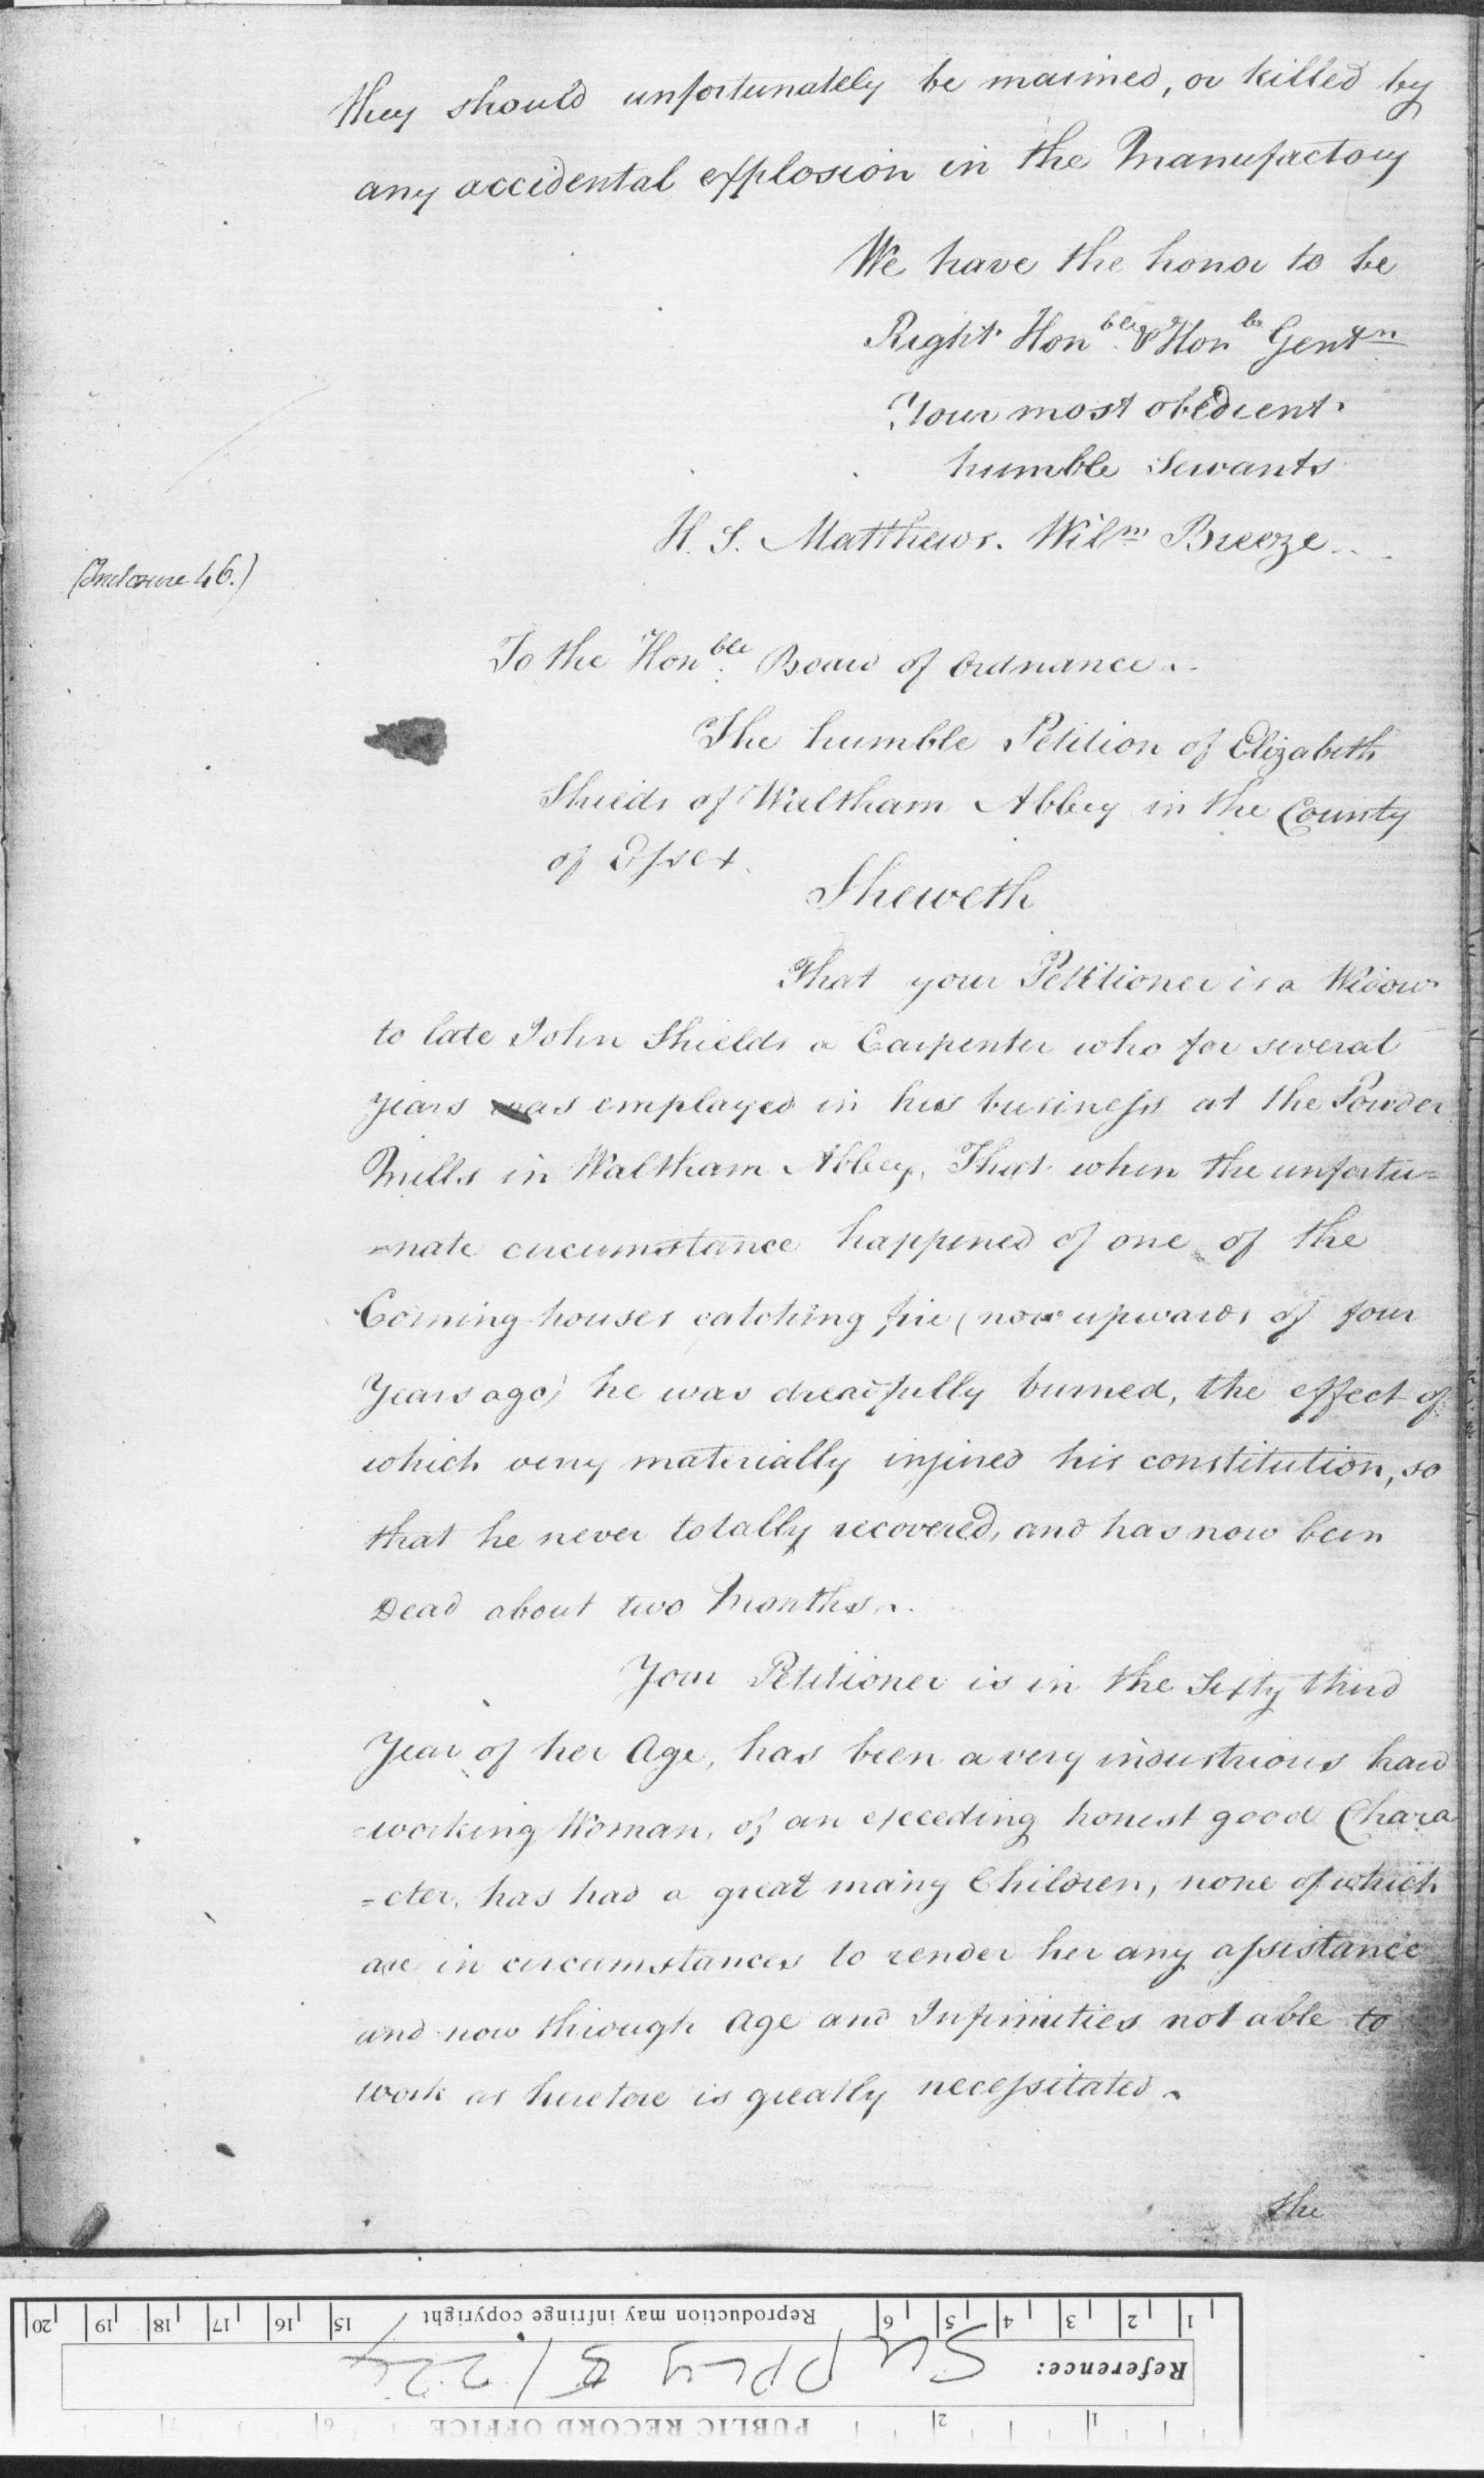 they should unfortunately be maimed, or killed by
any accidental explosion in the Manufactory
We have the honor to be
Right Honble & Honble Gentn
Your most obedient
humble Servants
H. S. Matthews. Wilm Breeze
(Inclosure 46.)
To the Honble Board of Ordnance
The humble Petition of Elizabeth
Shields of Waltham Abbey in the County
of Essex.
Sheweth
That your Petitioner is a Widow
to late John Shields a Carpenter who for several
years was employed in his business at the Powder
Mills in Waltham Abbey, That when the unfortu=
=nate circumstance happened of one of the
Corning-houses catching fire (now upwards of four
Years ago) he was dreadfully burned, the effect of
which very materially injured his constitution, so
that he never totally recovered, and has now been
Dead about two Months.
Your Petitioner is in the Sixty third
Year of her Age, has been a very industrious hard
=working Woman, of an exceeding honest good Chara
=cter, has had a great many Children, none of which
are in circumstances to render her any assistance
and now through Age and Infirmities not able to
work as heretore is greatly necessitated.
the
PUBLIC RECORD OFFICE
Reference: Supply 5/224
Reproduction may infringe copyright